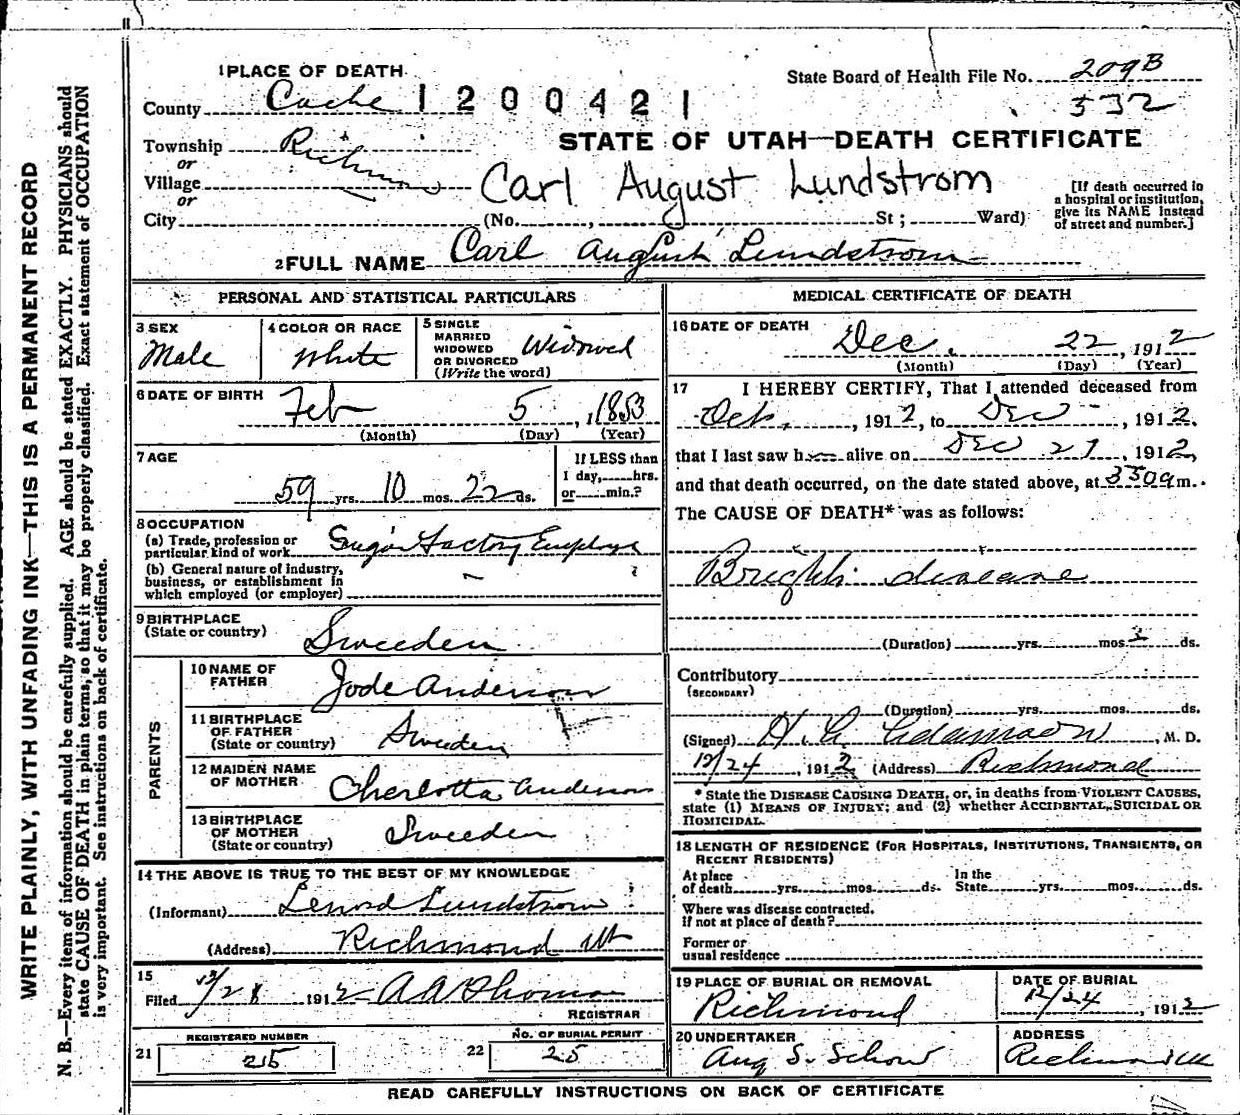 1 PLACE OF DEATH
State Board of Health File No. 209B
County Cache 1200421
532
Township Richmond
STATE OF UTAH—DEATH CERTIFICATE
or
Village
Carl August Lundstrom
or
City (No. , St; Ward)
[If death occurred in
a hospital or institution,
give its NAME instead
of street and number.]
2 FULL NAME Carl August Lundstrom
PERSONAL AND STATISTICAL PARTICULARS
3 SEX
Male
4 COLOR OR RACE
White
5 SINGLE
MARRIED
WIDOWED
OR DIVORCED
(Write the word)
Widowed
6 DATE OF BIRTH
Feb 5, 1853
(Month) (Day) (Year)
7 AGE
59 yrs. 10 mos. 22 ds.
If LESS than
1 day, hrs.
or min.?
8 OCCUPATION
(a) Trade, profession or
particular kind of work Sugar Factory Employe
(b) General nature of industry,
business, or establishment in
which employed (or employer)
9 BIRTHPLACE
(State or country)
Sweeden
PARENTS
10 NAME OF
FATHER
Jode Anderson
11 BIRTHPLACE
OF FATHER
(State or country)
Sweeden
12 MAIDEN NAME
OF MOTHER
Cherlotta Anderson
13 BIRTHPLACE
OF MOTHER
(State or country)
Sweeden
14 THE ABOVE IS TRUE TO THE BEST OF MY KNOWLEDGE
(Informant) Lenord Lundstrom
(Address) Richmond Ut
15
Filed 12/28 1912 A A Thomson
REGISTRAR
REGISTERED NUMBER
21 215
NO. OF BURIAL PERMIT
22 25
MEDICAL CERTIFICATE OF DEATH
16 DATE OF DEATH
Dec. 22, 1912
(Month) (Day) (Year)
17 I HEREBY CERTIFY, That I attended deceased from
Oct, 1912, to Dec, 1912.
that I last saw h alive on Dec 21, 1912,
and that death occurred, on the date stated above, at 330am.
The CAUSE OF DEATH* was as follows:
Brights disease
(Duration) yrs. mos 3 ds.
Contributory
(SECONDARY)
(Duration) yrs. mos. ds.
(Signed) Adamson, M. D.
12/24, 1912 (Address) Richmond
* State the DISEASE CAUSING DEATH, or, in deaths from VIOLENT CAUSES,
state (1) MEANS OF INJURY; and (2) whether ACCIDENTAL, SUICIDAL OR
HOMICIDAL.
18 LENGTH OF RESIDENCE (FOR HOSPITALS, INSTITUTIONS, TRANSIENTS, OR
RECENT RESIDENTS)
At place
of death yrs. mos. ds.
In the
State yrs. mos. ds.
Where was disease contracted,
if not at place of death?
Former or
usual residence
19 PLACE OF BURIAL OR REMOVAL
Richmond
DATE OF BURIAL
12/24, 1912
20 UNDERTAKER
Aug S. Schow
ADDRESS
Richmond
READ CAREFULLY INSTRUCTIONS ON BACK OF CERTIFICATE
WRITE PLAINLY, WITH UNFADING INK—THIS IS A PERMANENT RECORD
N. B.—Every item of information should be carefully supplied. AGE should be stated EXACTLY. PHYSICIANS should
state CAUSE OF DEATH in plain terms, so that it may be properly classified. Exact statement of OCCUPATION
is very important. See instructions on back of certificate.